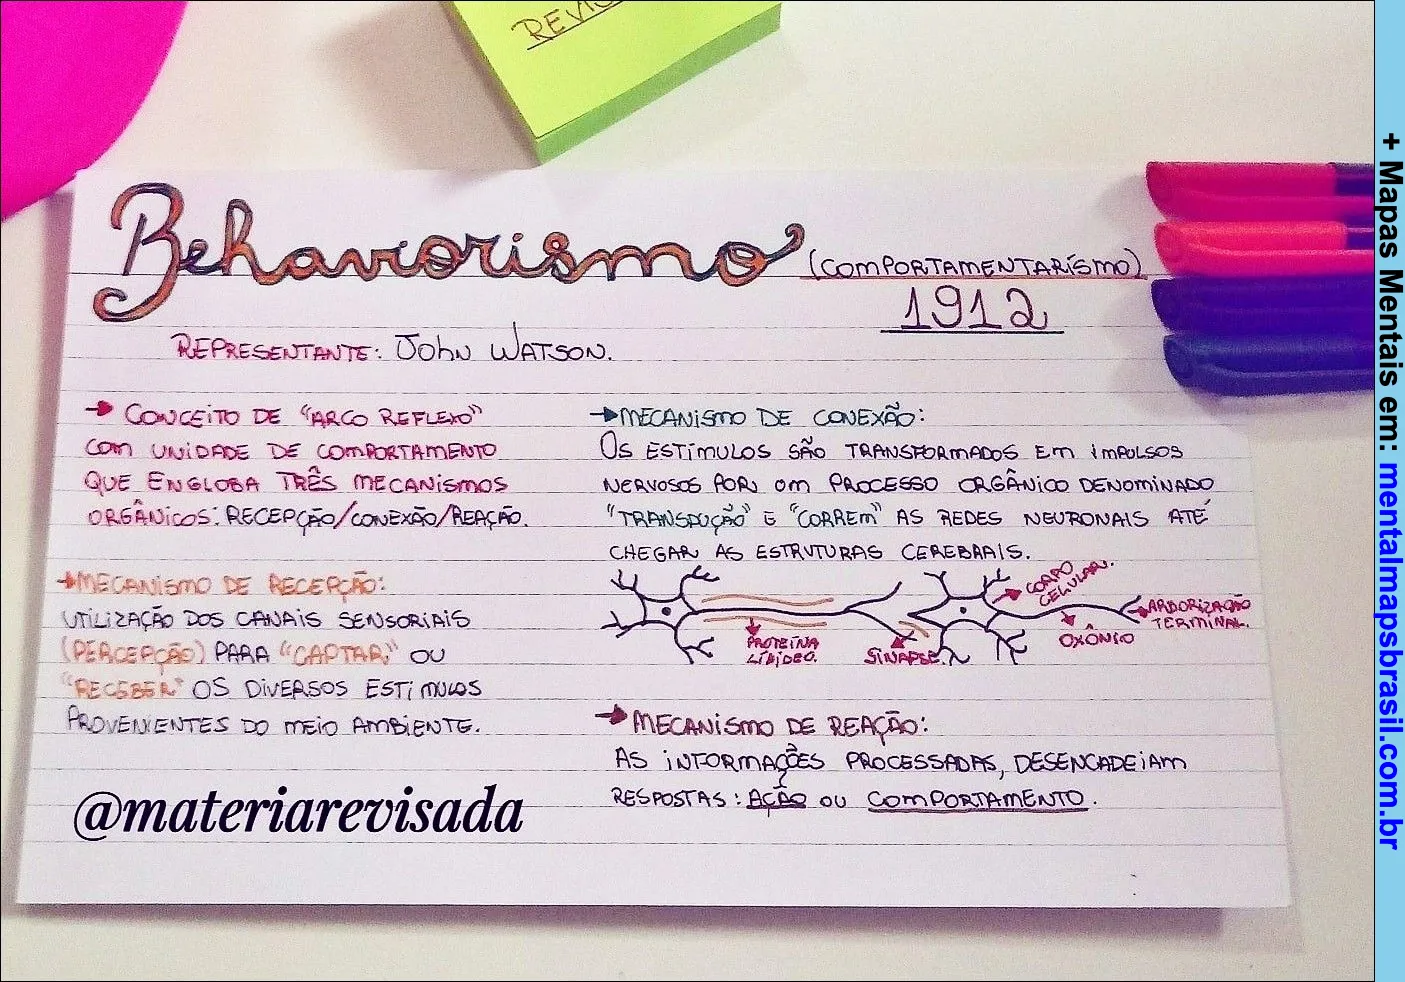 Behaviorismo (COMPORTAMENTARÍSMO)
1912
REPRESENTANTE: JOHN WATSON.
→ CONCEITO DE "ARCO REFLEXO"
COM UNIDADE DE COMPORTAMENTO
QUE ENGLOBA TRÊS MECANISMOS
ORGÂNICOS: RECEPÇÃO/CONEXÃO/REAÇÃO.
→MECANISMO DE RECEPÇÃO:
UTILIZAÇÃO DOS CANAIS SENSORIAIS
(PERCEPÇÃO) PARA "CAPTAR" OU
"RECEBER" OS DIVERSOS ESTIMULOS
PROVENIENTES DO MEIO AMBIENTE.
@materiarevisada
→MECANISMO DE CONEXÃO:
OS ESTÍMULOS SÃO TRANSFORMADOS EM IMPULSOS
NERVOSOS POR UM PROCESSO ORGÂNICO DENOMINADO
"TRANSDUÇÃO" E "CORREM" AS REDES NEURONAIS ATÉ
CHEGAR AS ESTRUTURAS CEREBRAIS.
CORPO
CELULAR.
ARBORIZAÇÃO
TERMINAL.
OXÔNIO
PROTEÍNA
LIPÍDEO.
SINAPSE.
→ MECANISMO DE REAÇÃO:
AS INFORMAÇÕES PROCESSADAS, DESENCADEIAM
RESPOSTAS: AÇÃO OU COMPORTAMENTO.
+ Mapas Mentais em: mentalmapsbrasil.com.br